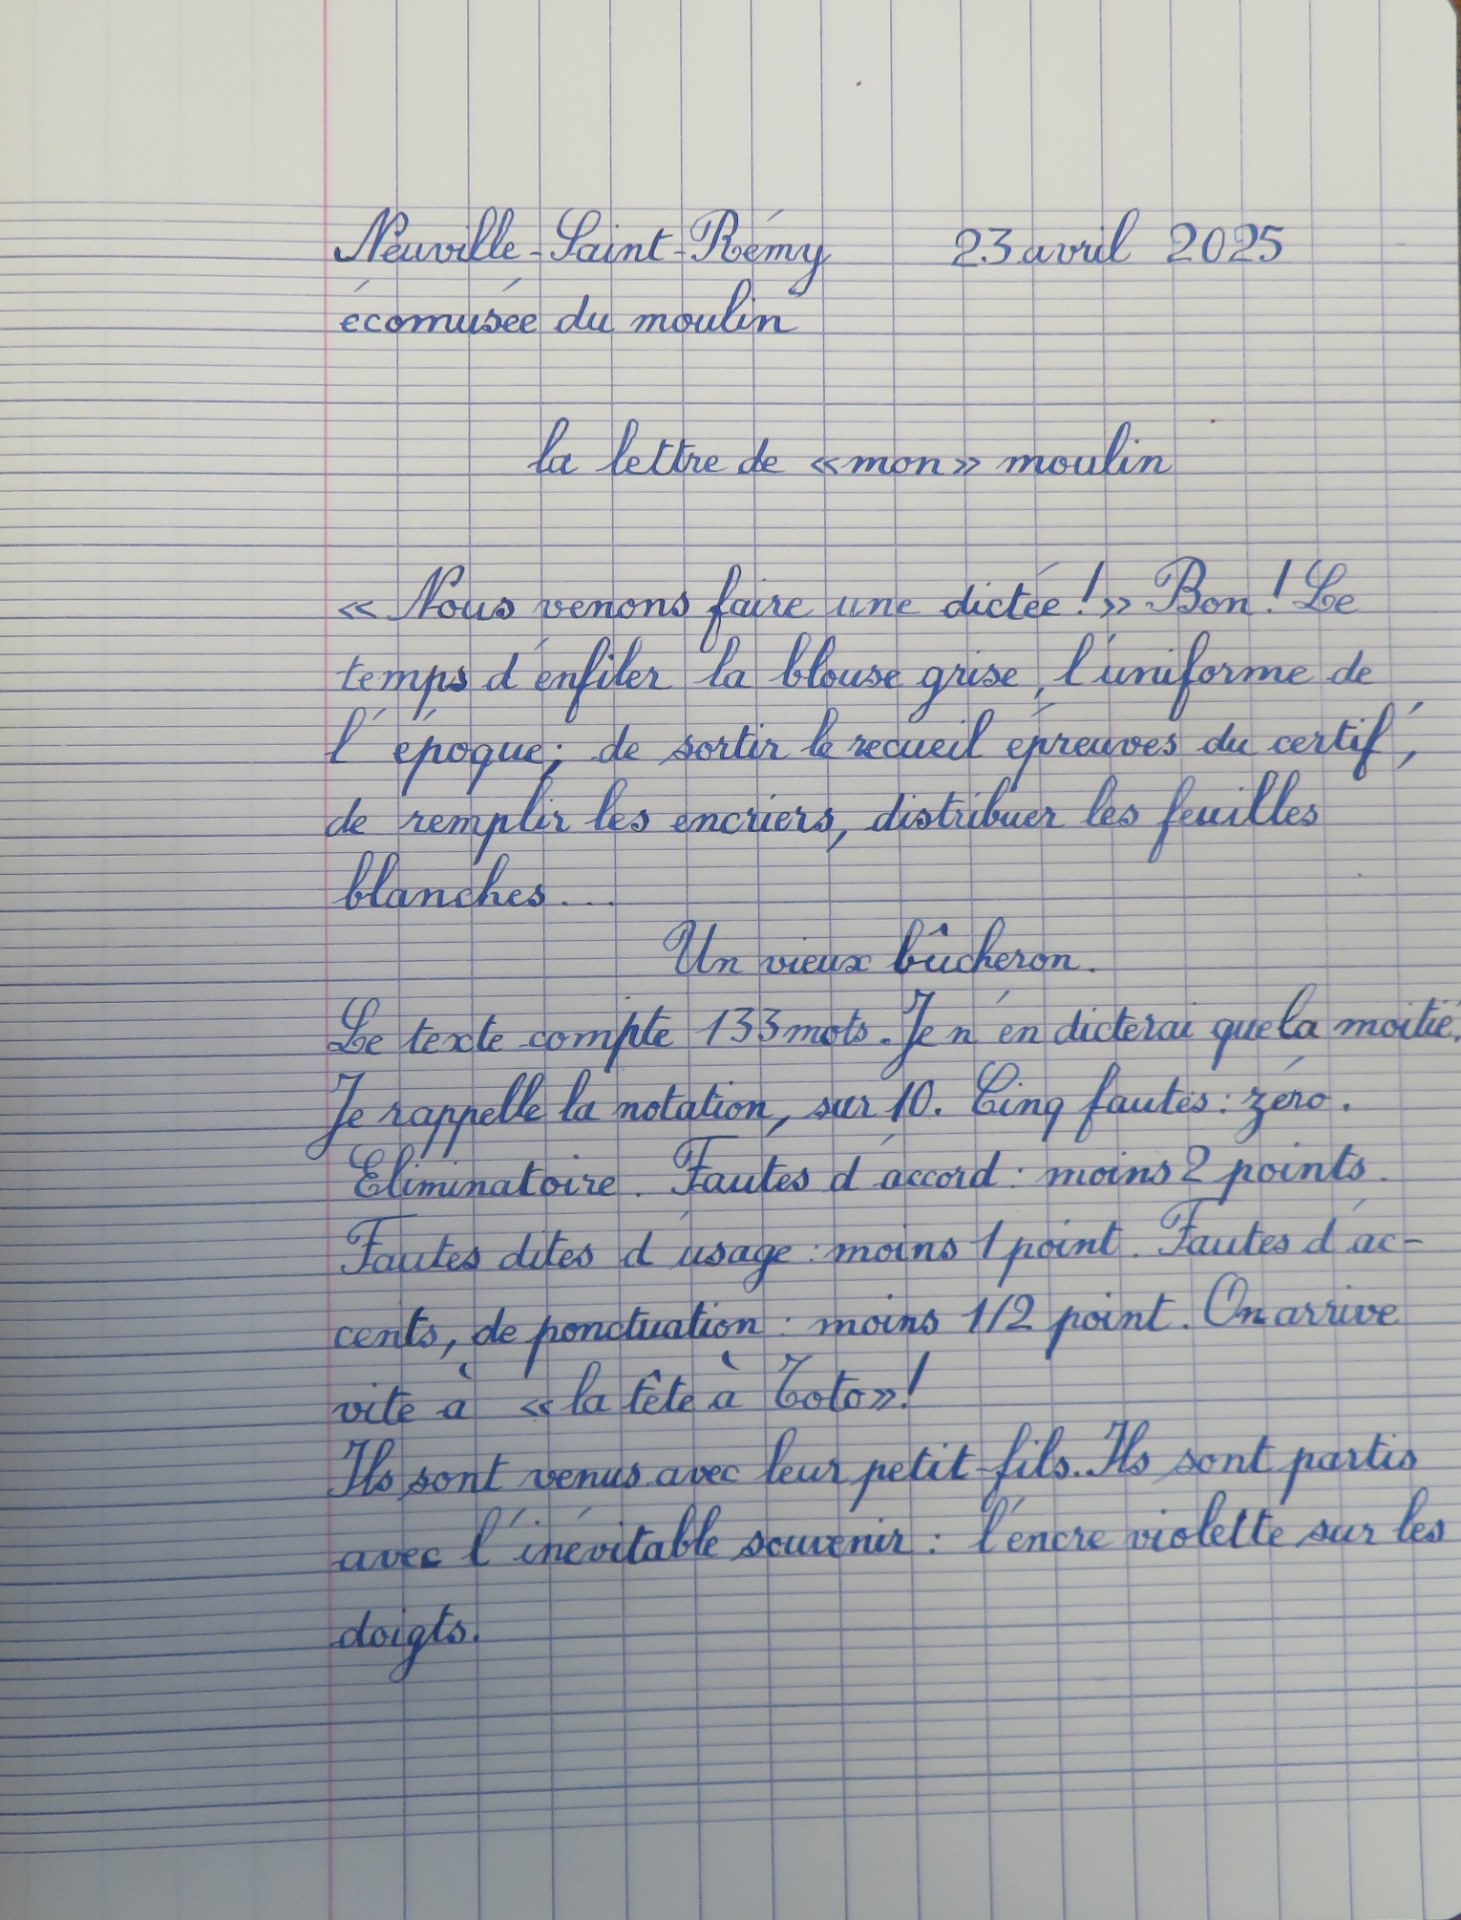 Neuville-Saint-Rémy 23 avril 2025
écomusée du moulin
la lettre de «mon» moulin
« Nous venons faire une dictée !» Bon ! Le
temps d'enfiler la blouse grise, l'uniforme de
l'époque; de sortir le recueil épreuves du certif',
de remplir les encriers, distribuer les feuilles
blanches...
Un vieux bûcheron.
Le texte compte 133 mots. Je n'en dicterai que la moitié.
Je rappelle la notation, sur 10. Cinq fautes : zéro.
Eliminatoire. Fautes d'accord : moins 2 points.
Fautes dites d'usage : moins 1 point. Fautes d'ac-
cents, de ponctuation : moins 1/2 point. On arrive
vite à «la tête à Toto»!
Ils sont venus avec leur petit-fils. Ils sont partis
avec l'inévitable souvenir : l'encre violette sur les
doigts.